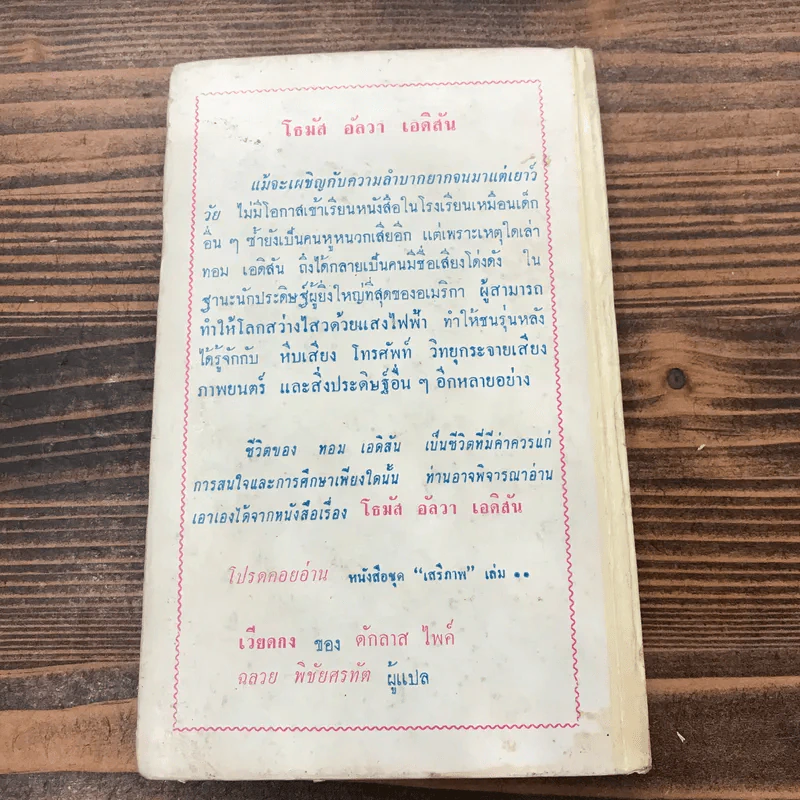 โธมัส อัลวา เอดิสัน
แม้จะเผชิญกับความลำบากยากจนมาแต่เยาว์
วัย ไม่มีโอกาสเข้าเรียนหนังสือในโรงเรียนเหมือนเด็ก
อื่น ๆ ซ้ำยังเป็นคนหูหนวกเสียอีก แต่เพราะเหตุใดเล่า
ทอม เอดิสัน ถึงได้กลายเป็นคนมีชื่อเสียงโด่งดัง ใน
ฐานะนักประดิษฐ์ผู้ยิ่งใหญ่ที่สุดของอเมริกา ผู้สามารถ
ทำให้โลกสว่างไสวด้วยแสงไฟฟ้า ทำให้ชนรุ่นหลัง
ได้รู้จักกับ หีบเสียง โทรศัพท์ วิทยุกระจายเสียง
ภาพยนตร์ และสิ่งประดิษฐ์อื่น ๆ อีกหลายอย่าง
ชีวิตของ ทอม เอดิสัน เป็นชีวิตที่มีค่าควรแก่
การสนใจและการศึกษาเพียงใดนั้น ท่านอาจพิจารณาอ่าน
เอาเองได้จากหนังสือเรื่อง โธมัส อัลวา เอดิสัน
โปรดคอยอ่าน หนังสือชุด “เสรีภาพ” เล่ม ๑๑
เวียดกง ของ ดักลาส ไพค์
ฉลวย พิชัยศรทัต ผู้แปล